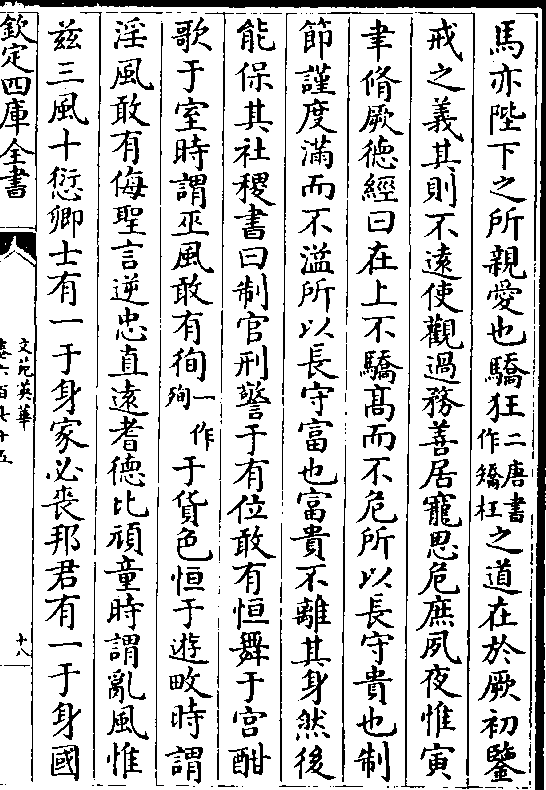 馬亦陛下之所親愛也驕狂二唐書作矯枉之道在於厥初鑒
戒之義其則不遠使觀過務善居寵思危庶夙夜惟寅
聿脩厥德經曰在上不驕髙而不危所以長守貴也制
節謹度滿而不溢所以長守富也富貴不離其身然後
能保其社稷書曰制官刑警于有位敢有恒舞于宫酣
歌于室時謂巫風敢有徇一作殉于貨色恒于遊畋時謂
淫風敢有侮聖言逆忠直遠耆德比頑童時謂亂風惟
兹三風十愆卿士有一于身家必喪邦君有一于身國
欽定四庫全書
文苑英華
卷六百七十五
十八